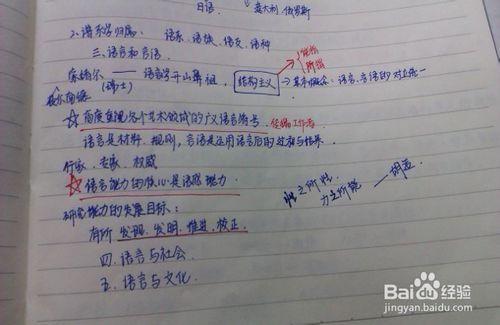 日语 意大利,俄罗斯
2.谱系学归属: 语系、语族、语支、语种
三.语言和言语
索绪尔 —— 语言学开山鼻祖, 结构主义 能指 所指
(瑞士) 基本概念:语言、言语的对立统一
☆高度重视各个艺术领域的广义语言符号.
语言是材料、规则,言语是运用语言后的过程与结果.
行家、专家、权威
☆语言能力的核心是语感能力
研究能力的发展目标:
有所发现、发明、推进、校正.
四.语言与社会
五.语言与文化
性之所近,
力之所能 —— 胡适
Baidu 经验
jingyan.baidu.com